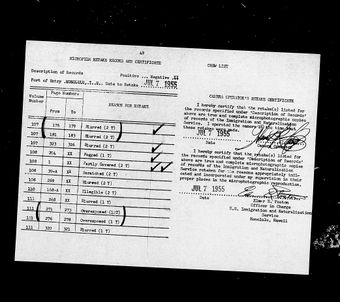 49
MICROFILM RETAKE RECORD AND CERTIFICATE
CREW LIST
Description of Records
Positive ... Negative XX
Port of Entry HONOLULU, T.H. Date to Retake JUL 7 1955
Volume Number
Page Numbers
From
To
REASON FOR RETAKE
107 176 179 Blurred (2 T)
107 181 183 Blurred (2 T)
107 323 326 Blurred (2 T)
108 XX Fogged (1 T)
108 XX Partly Screened (2 T)
110 XX Scratched (2 T)
110 268 XX Blurred (2 T)
110 XX Illegible (2 T)
111 268 XX Blurred (1 T)
111 271 273 Overexposed
111 276 278 Overexposed (1 T)
111 320 321 Blurred (1 T)
CAMERA OPERATOR'S RETAKE CERTIFICATE
I hereby certify that the retake(s) listed for
the records specified under "Description of Records"
above are true and complete microphotographic copies
of records of the Immigration and Naturalization
Service. I operated the camera
these retakes were made.
JUL 7 1955
Date
I hereby certify that the retake(s) listed for
the records specified under "Description of Records"
above are true and complete microphotographic copies
of records of the Immigration and Naturalization
Service retaken for the reasons appropriately indi-
cated and incorporated under my supervision in their
proper places in the microphotographic reproduction.
JUL 7 1955
Date
Elmer D. Poston
Officer in Charge
U.S. Immigration and Naturalization
Service
Honolulu, Hawaii